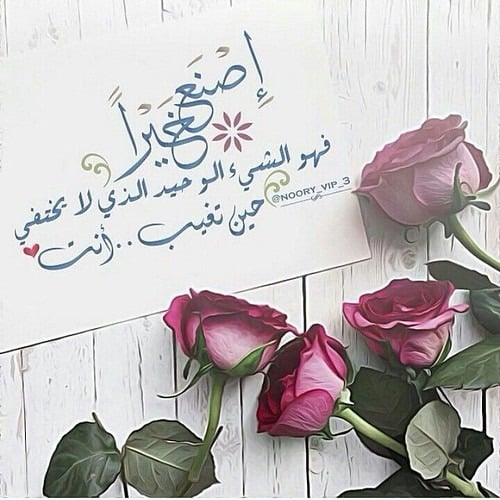 إِصْنَع
خَيْراً
فهو الشيء الوحيد الذي لا يختفي
حين تغيب .. أنت
@NOORY_VIP_3